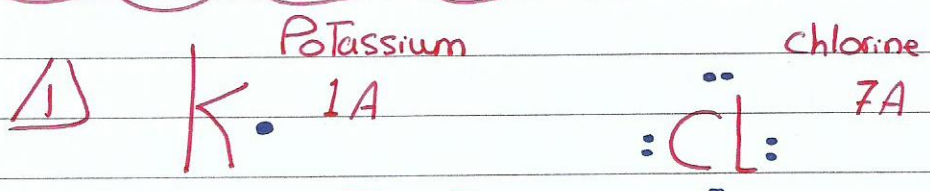 Potassium Chlorine
1 K 1A Cl 7A